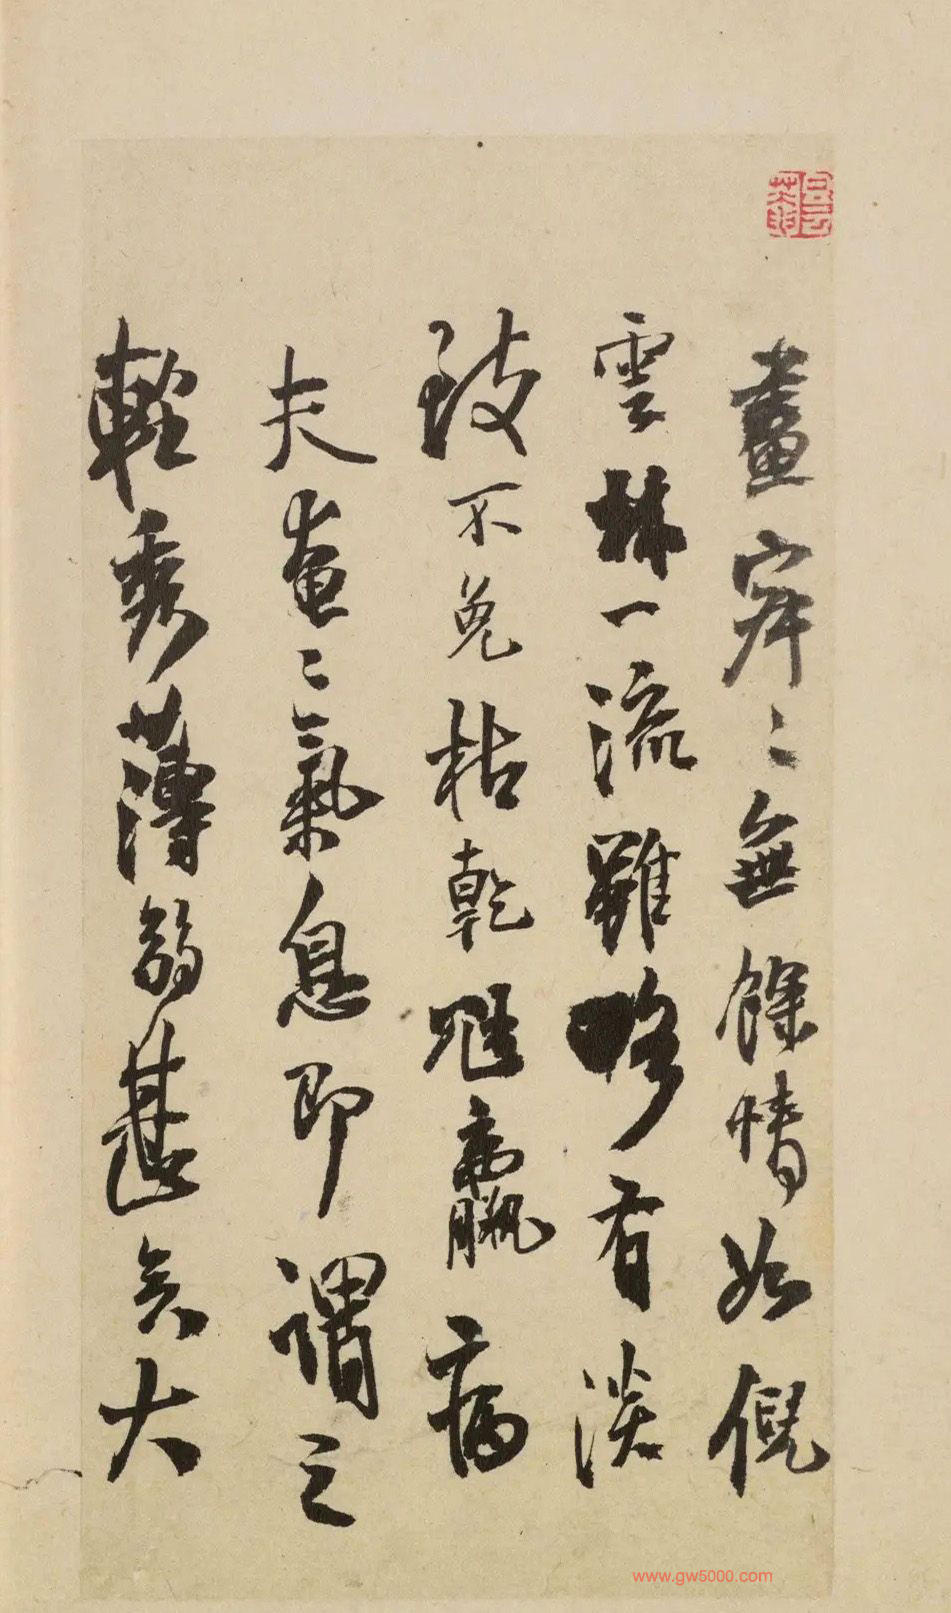 畫寂々無餘情如倪
雲林一流雖略有淡
致不免枯乾尫羸病
夫奄々氣息即謂之
輕秀薄弱甚矣大
www.gw5000.com